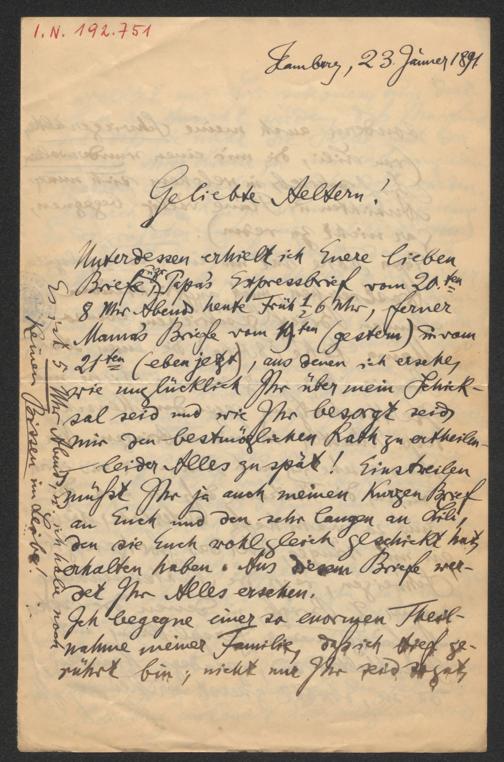 I.N. 192.751
Hamburg, 23. Jänner 1891
Geliebte Aeltern!
Unterdessen erhielt ich Euere lieben
Briefe, Papa's Expressbrief vom 20.ten
8 Uhr Abend heute Früh ½ 6 Uhr, ferner
Mama's Briefe vom 19ten (gestern) u vom
21ten (eben jetzt), aus denen ich ersehe,
wie unglücklich Ihr über mein Schick-
sal seid und wie Ihr besorgt seid,
mir den bestmöglichen Rath zu ertheilen
leider Alles zu spät! Einstweilen
müßt Ihr ja auch meinen kurzen Brief
an Euch und den sehr langen an Lili,
den sie Euch wohl gleich geschickt hat,
erhalten haben. Aus diesem Briefe wer-
det Ihr Alles ersehen.
Ich begegne einer so enormen Theil-
nahme meiner Familie, daß ich tief ge-
rührt bin; nicht nur Ihr seid so gut,
Es ist 5 Uhr Abend, u ich habe noch
keinen Bissen im Leibe!